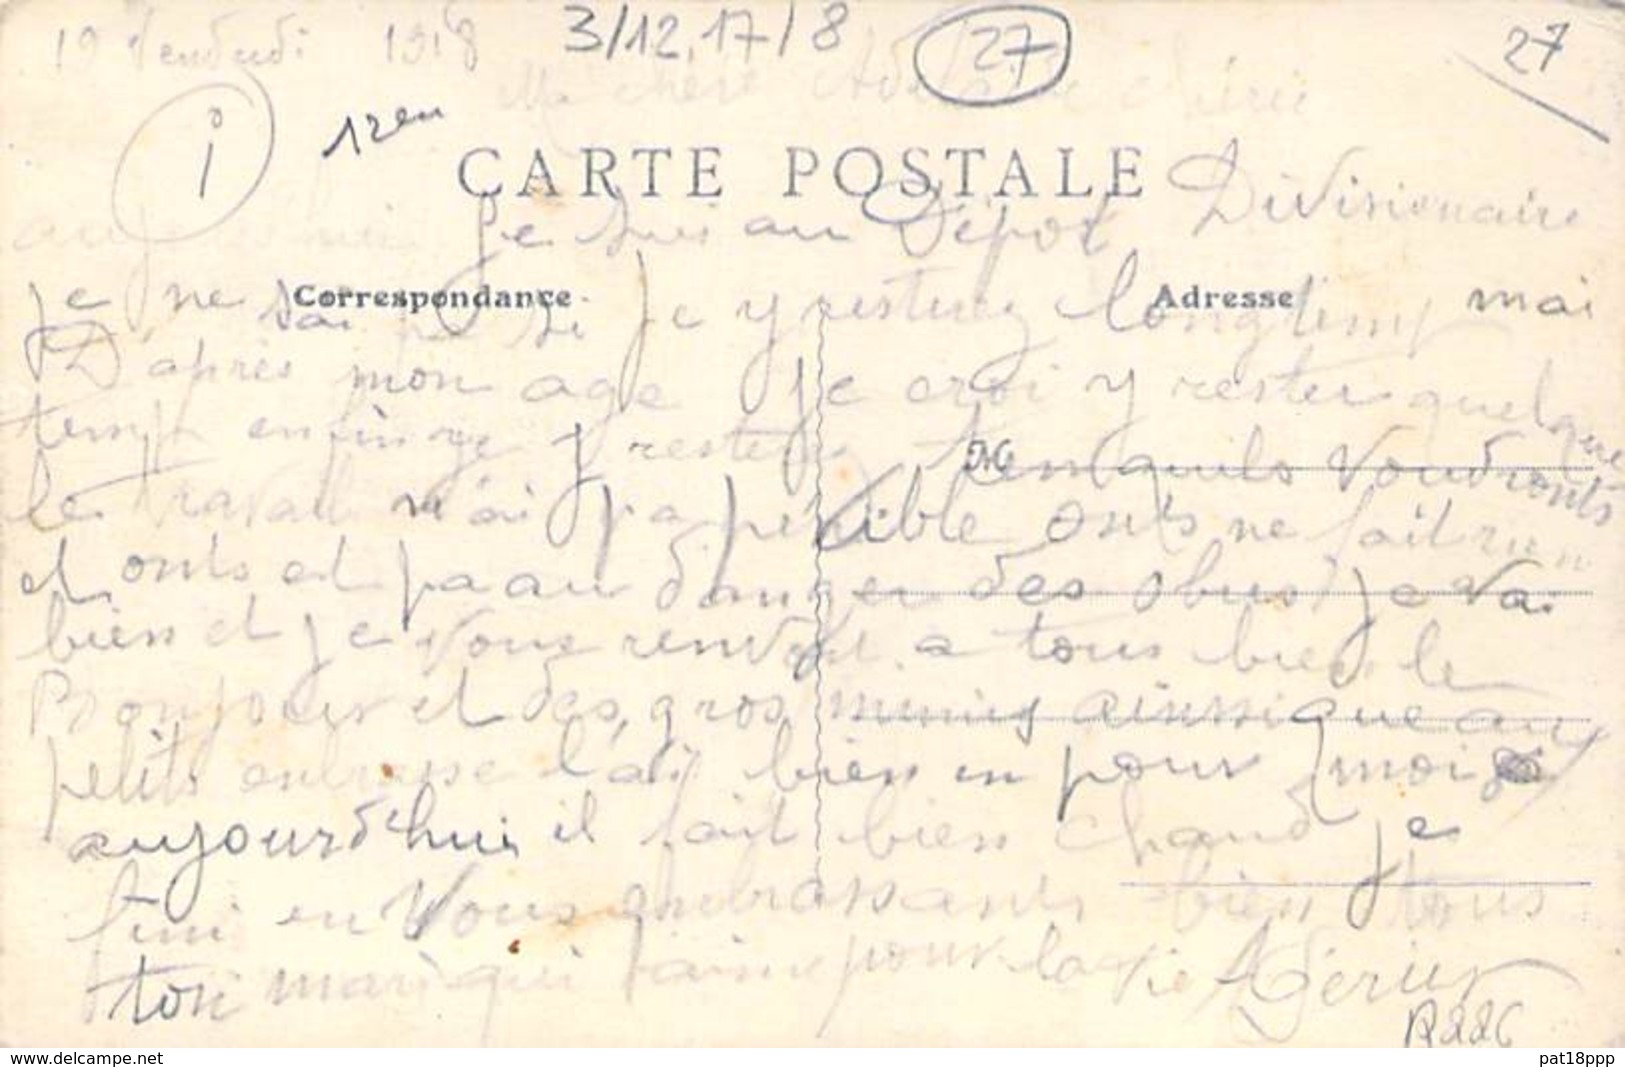 19 Vendredi 1918 3/12,17/8 27 27
Ma chère chérie
i 12eu
CARTE POSTALE
aujourdhui Je suis au Dépot Divisionaire
Correspondance Adresse
je ne sai pa si je y resterez longtemp mai
D'après mon age je croi y rester quelque
temp enfin je y rester tems quils voudronts
le travail n'ai pa penible onts ne fait rien
et onts et pa au danger des obus je vai
bien et je vous renvoi a tous bien le
Bonjour et des gros mimis ainssi que aux
petits enbrasse lais bien en pour moi
aujourd'hui il fait bien chaud je
fini en vous enbrassants bien tous
ton mari qui taime pour la vie
R226
www.delcampe.net
pat18ppp